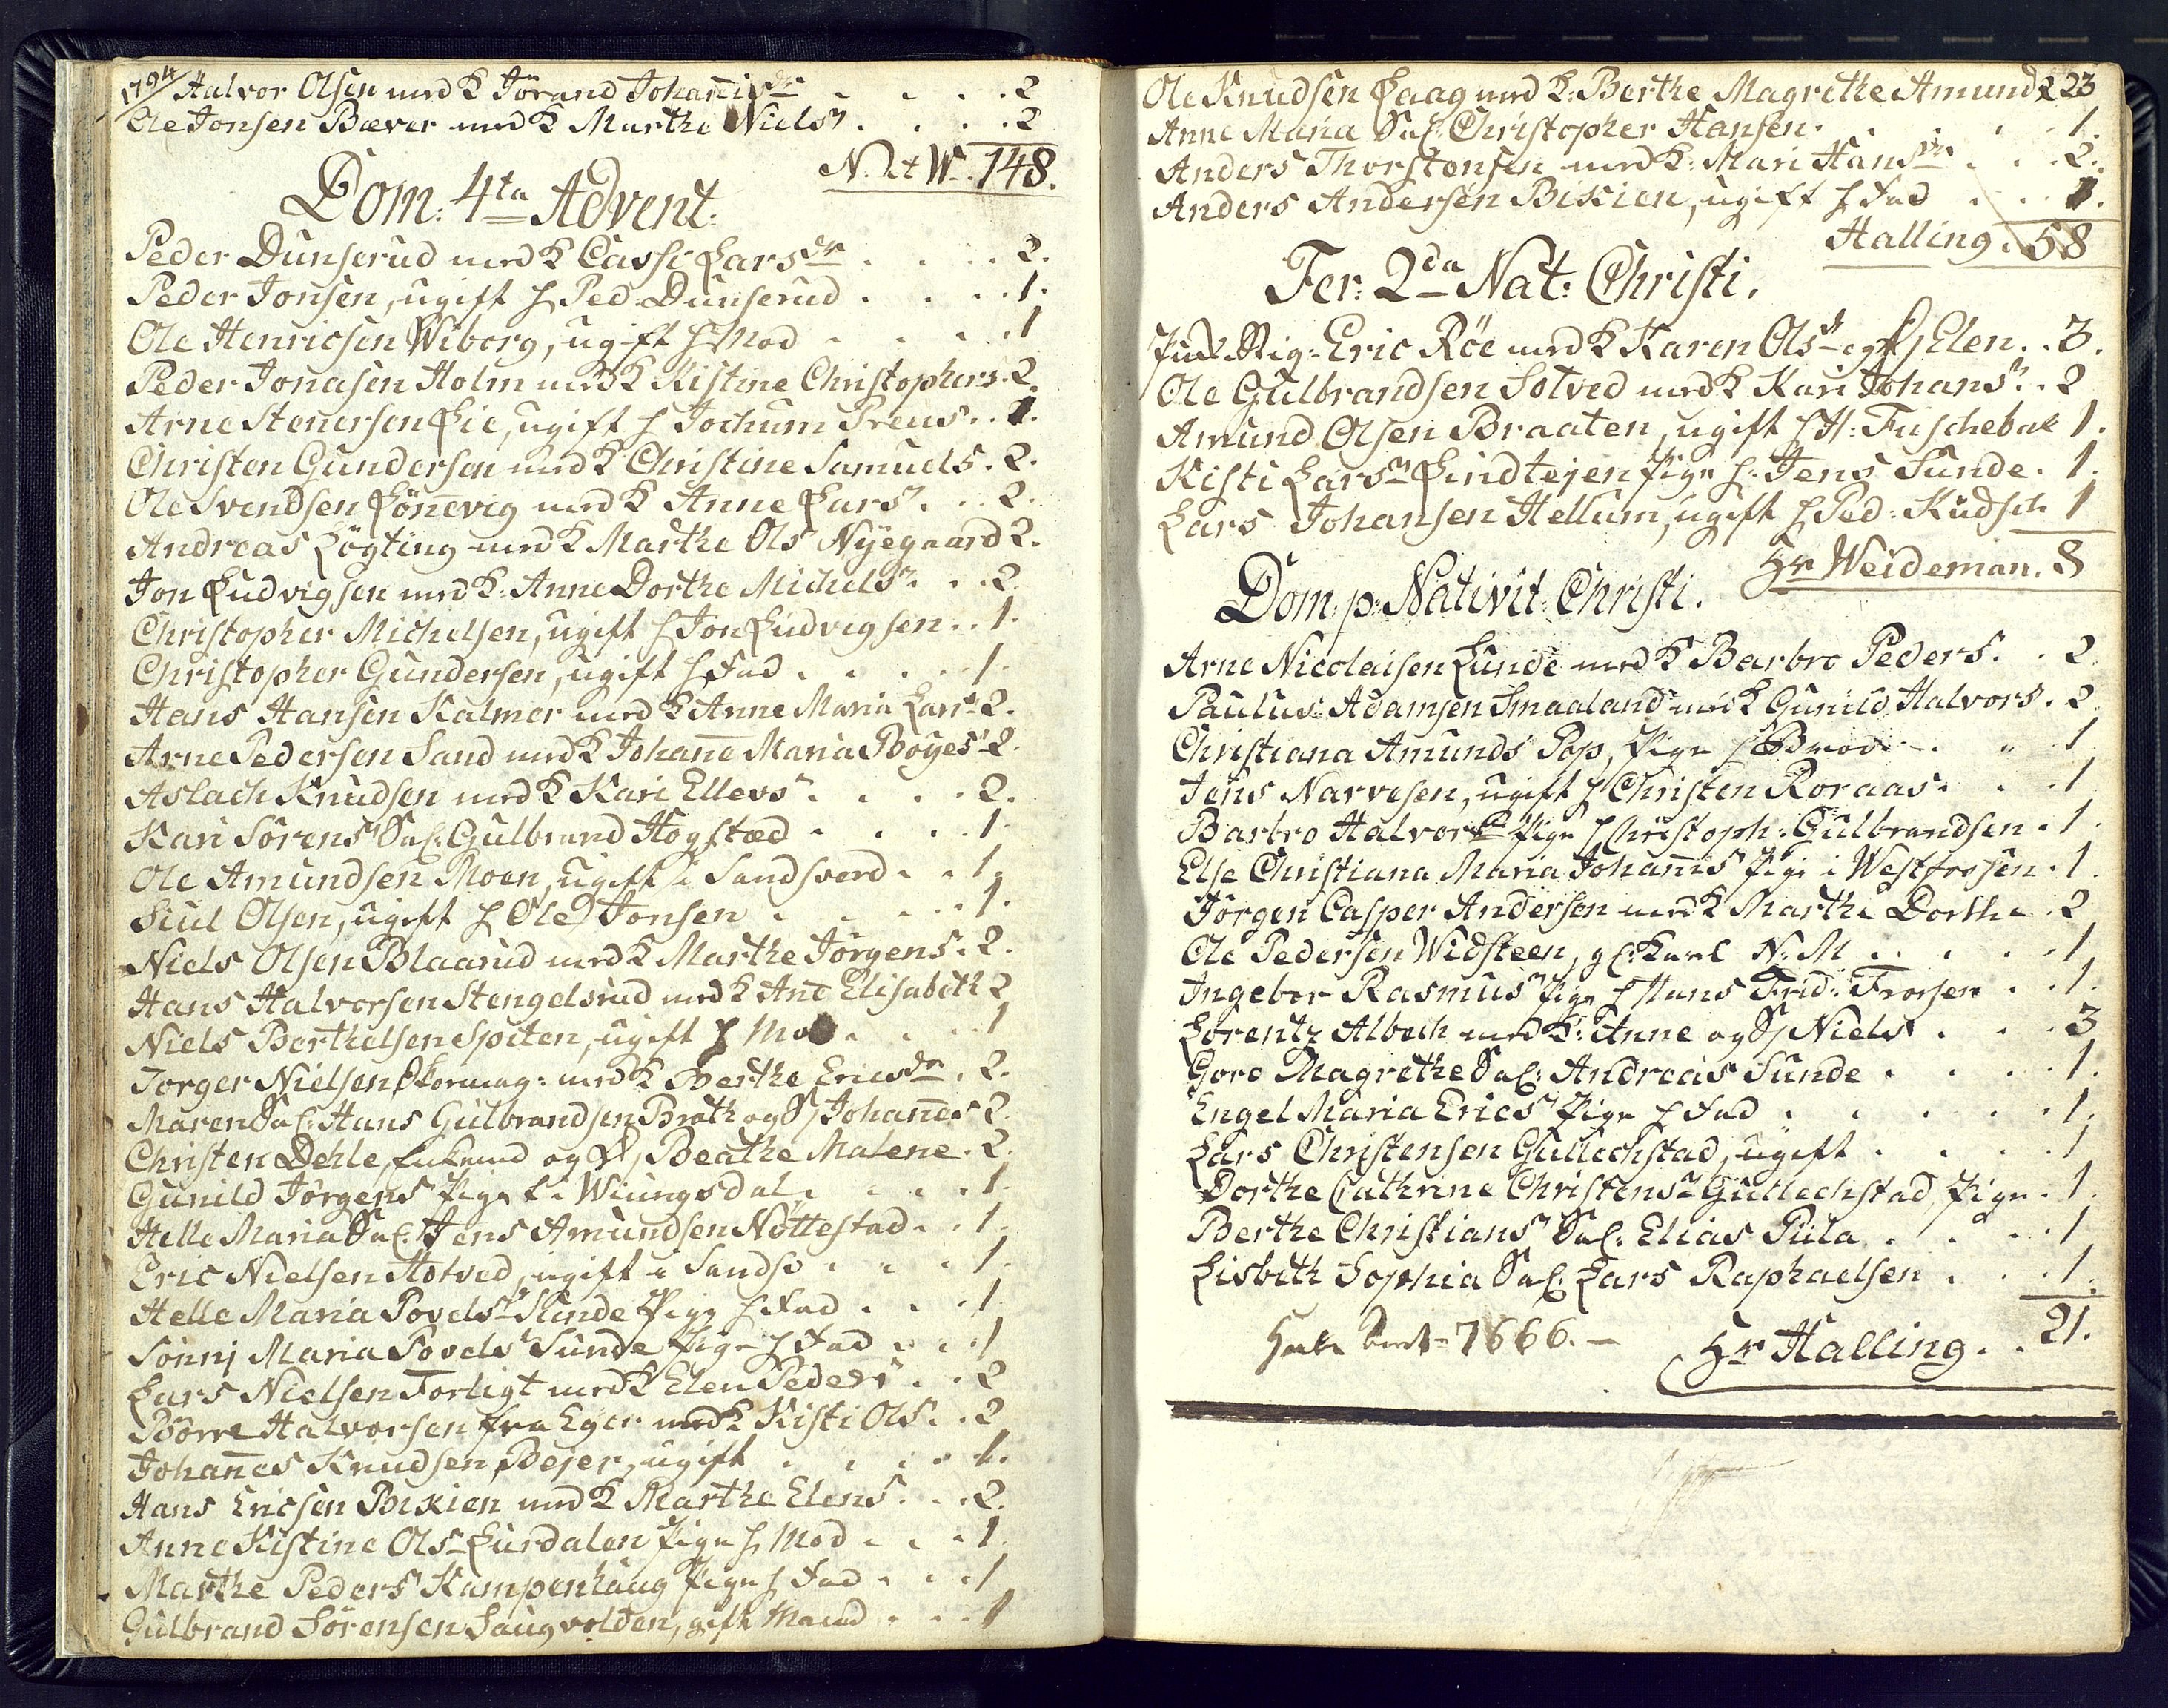 1794
Halvor Olsen med K Jörand Johañisdr . . . . 2
Ole Jonsen Bæver med K Marthe Nielsr . . . . 2
N. et W. 148.
Dom: 4ta Advent:
Peder Dunserud med K Cassi Larsdr . . . . 2.
Peder Jonsen, ugift h Ped: Dunserud . . . . 1.
Ole Henricsen Wiborg, ugift h Mod . . . . 1
Peder Jonasen Holm med K Kistine Christophers. 2.
Arne Stenersen Lie, ugift h Jochum Preus . . 1.
Christen Gundersen med K Christine Samuels. 2.
Ole Svendsen Löñevig med K Anne Larsr . . 2.
Andreas Lögting med K Marthe Ols Nyegaard 2.
Jon Ludvigsen med K: Anne Dorthe Michelsr . . 2.
Christopher Michelsen, ugift h Jon Ludvigsen . . 1.
Christopher Gundersen, ugift h Fad . . . . 1.
Hans Hansen Kalmer med K Anne Maria Larsr 2.
Arne Pedersen Sand med K Johañe Maria Böyesr 2.
Aslach Knudsen med K Kari Ellevsr . . . . 2.
Kari Sörensr Sal: Gulbrand Hogstæd . . . . 1.
Ole Amundsen Moen, ugift i Sandsverd . . 1.
Siul Olsen, ugift h Ole Jonsen . . . . 1.
Niels Olsen Blaarud med K Marthe Jörgens. 2.
Hans Halvorsen Stengelsrud med K Añe Elisabeth 2
Niels Berthelsen Spiten, ugift h Mod . . . 1
Torger Nielsen Skormag: med K Berthe Ericsdr . 2.
Maren Sal: Hans Gulbrandsen Bräth og S Johañes 2.
Christen Dehle, Enkemd og D, Beathe Malene. 2.
Gunild Jörgens Pige h i Wiungsdal . . . . 1.
Helle Maria Sal: Jens Amundsen Nöttestad . . 1.
Eric Nielsen Hotved, ugift i Sandsv . . . 1.
Helle Maria Povelsr Sunde Pige h Fad . . . 1
Sönnj Maria Povelsr Sunde Pige h Fad . . . 1
Lars Nielsen Forligt med K Elen Pedersr . . 2
Börre Halvorsen fra Eger med K Kisti Ols. . 2
Johañes Knudsen Bejer, ugift . . . . 1.
Hans Ericsen Bixien med K Marthe Elens . . . 2.
Anne Kistine Olsr Lurdalen Pige h Mod . . . 1
Marthe Pedersr Kampenhaug Pige h Fad . . . 1
Gulbrand Sörensen Saugvolden, gift Mand . . . 1
Ole Knudsen Laag med K: Berthe Magrethe Amunds 2 23
Anne Maria Sal: Christopher Hansen . . . . 1.
Anders Thorstensen med K: Mari Hansdr . . . 2.
Anders Andersen Bixien, ugift h Fad . . . 1.
Halling. 58
Fer: 2da Nat: Christi.
Eric Röe med K Karen Olsdr og S Elen . . 3.
Ole Gulbrandsen Solved med K Kari Johansr . . 2
Amund Olsen Braaten, ugift h H: Fuschebak 1.
Kisti Larsr Lindtejen Pige h: Jens Sunde. 1.
Lars Johansen Hellum, ugift h Ped: Kudsch 1
Hr Weideman. 8
Dom: p: Nativit: Christi.
Arne Nicolaisen Lunde med K Barbro Peders. . 2.
Paulus Adamsen Smaaland med K Gunild Halvors . 2
Christiana Amunds Pop, Pige h Broder . . 1
Jens Narvesen, ugift h Christen Roraas . . 1
Barbro Halvorsdr Pige h Christoph: Gulbrandsen . 1
Else Christiana Maria Johañis Pige i Westfossen . 1.
Jörgen Casper Andersen med K Marthe Dorthe . 2
Ole Pedersen Widsteen, g l: Karl N: M . . . . 1
Ingebor Rasmusr Pige h Hans Frid: Frossen . . 1.
Lorentz Albech med K: Anne og S Niels . . . 3
Goro Magrethe Sal: Andreas Sunde . . . . 1.
Engel Maria Ericsr Pige h Fad . . . . 1.
Lars Christensen Gullechstad, ugift . . . . 1
Dorthe Cathrine Christensr Gullechstad Pige . 1.
Berthe Christiansr Sal: Elias Piila . . . 1
Lisbeth Sophia Sal: Lars Raphaelsen . . . 1.
7666. — Hr Halling . . 21.